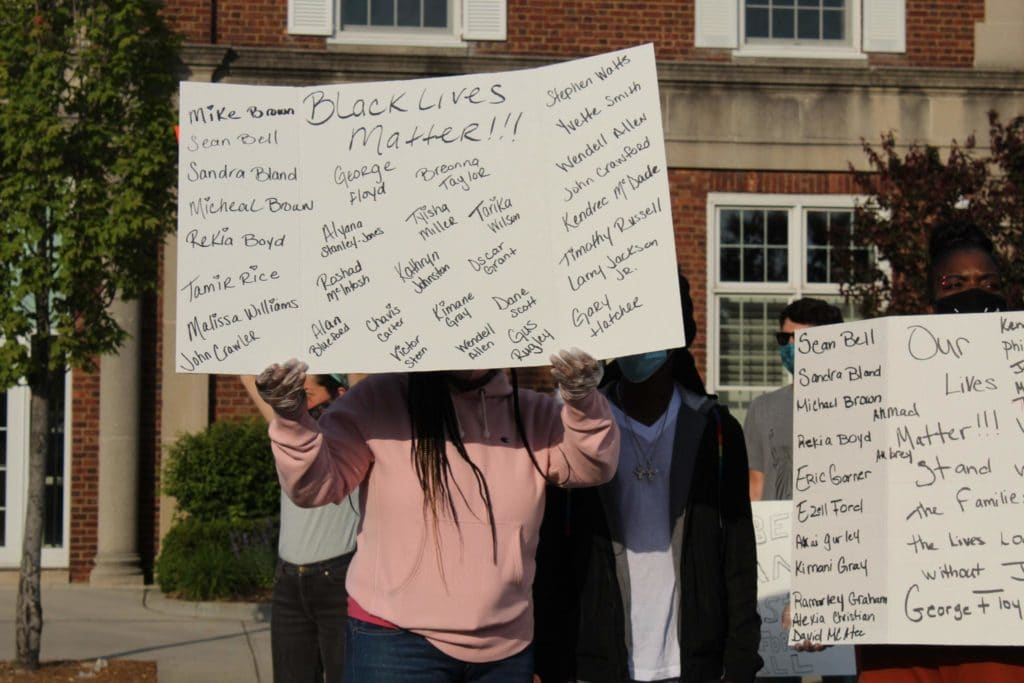 Black Lives
Matter!!!
Mike Brown
Sean Bell
Sandra Bland
Micheal Brown
Rekia Boyd
Tamir Rice
Malissa Williams
John Crawler
George
Floyd
Breonna
Taylor
Aiyana
Stanley-Jones
Tyisha
Miller
Tarika
Wilson
Rashad
McIntosh
Kathryn
Johnston
Oscar
Grant
Alan
Blueford
Chavis
Carter
Kimane
Gray
Dane
Scott
Victor
Steen
Wendell
Allen
Gus
Rugley
Stephen Watts
Yvette Smith
Wendell Allen
John Crawford
Kendrec McDade
Timothy Russell
Larry Jackson
Jr.
Gary
Hatcher
Sean Bell
Sandra Bland
Michael Brown
Rekia Boyd
Eric Garner
Ezell Ford
Akai gurley
Kimani Gray
Ramarley Graham
Alexia Christian
David McAtee
Our
Lives
Matter!!!
Ahmad
Arbrey
Stand
the Families
the Lives
without
George Floy